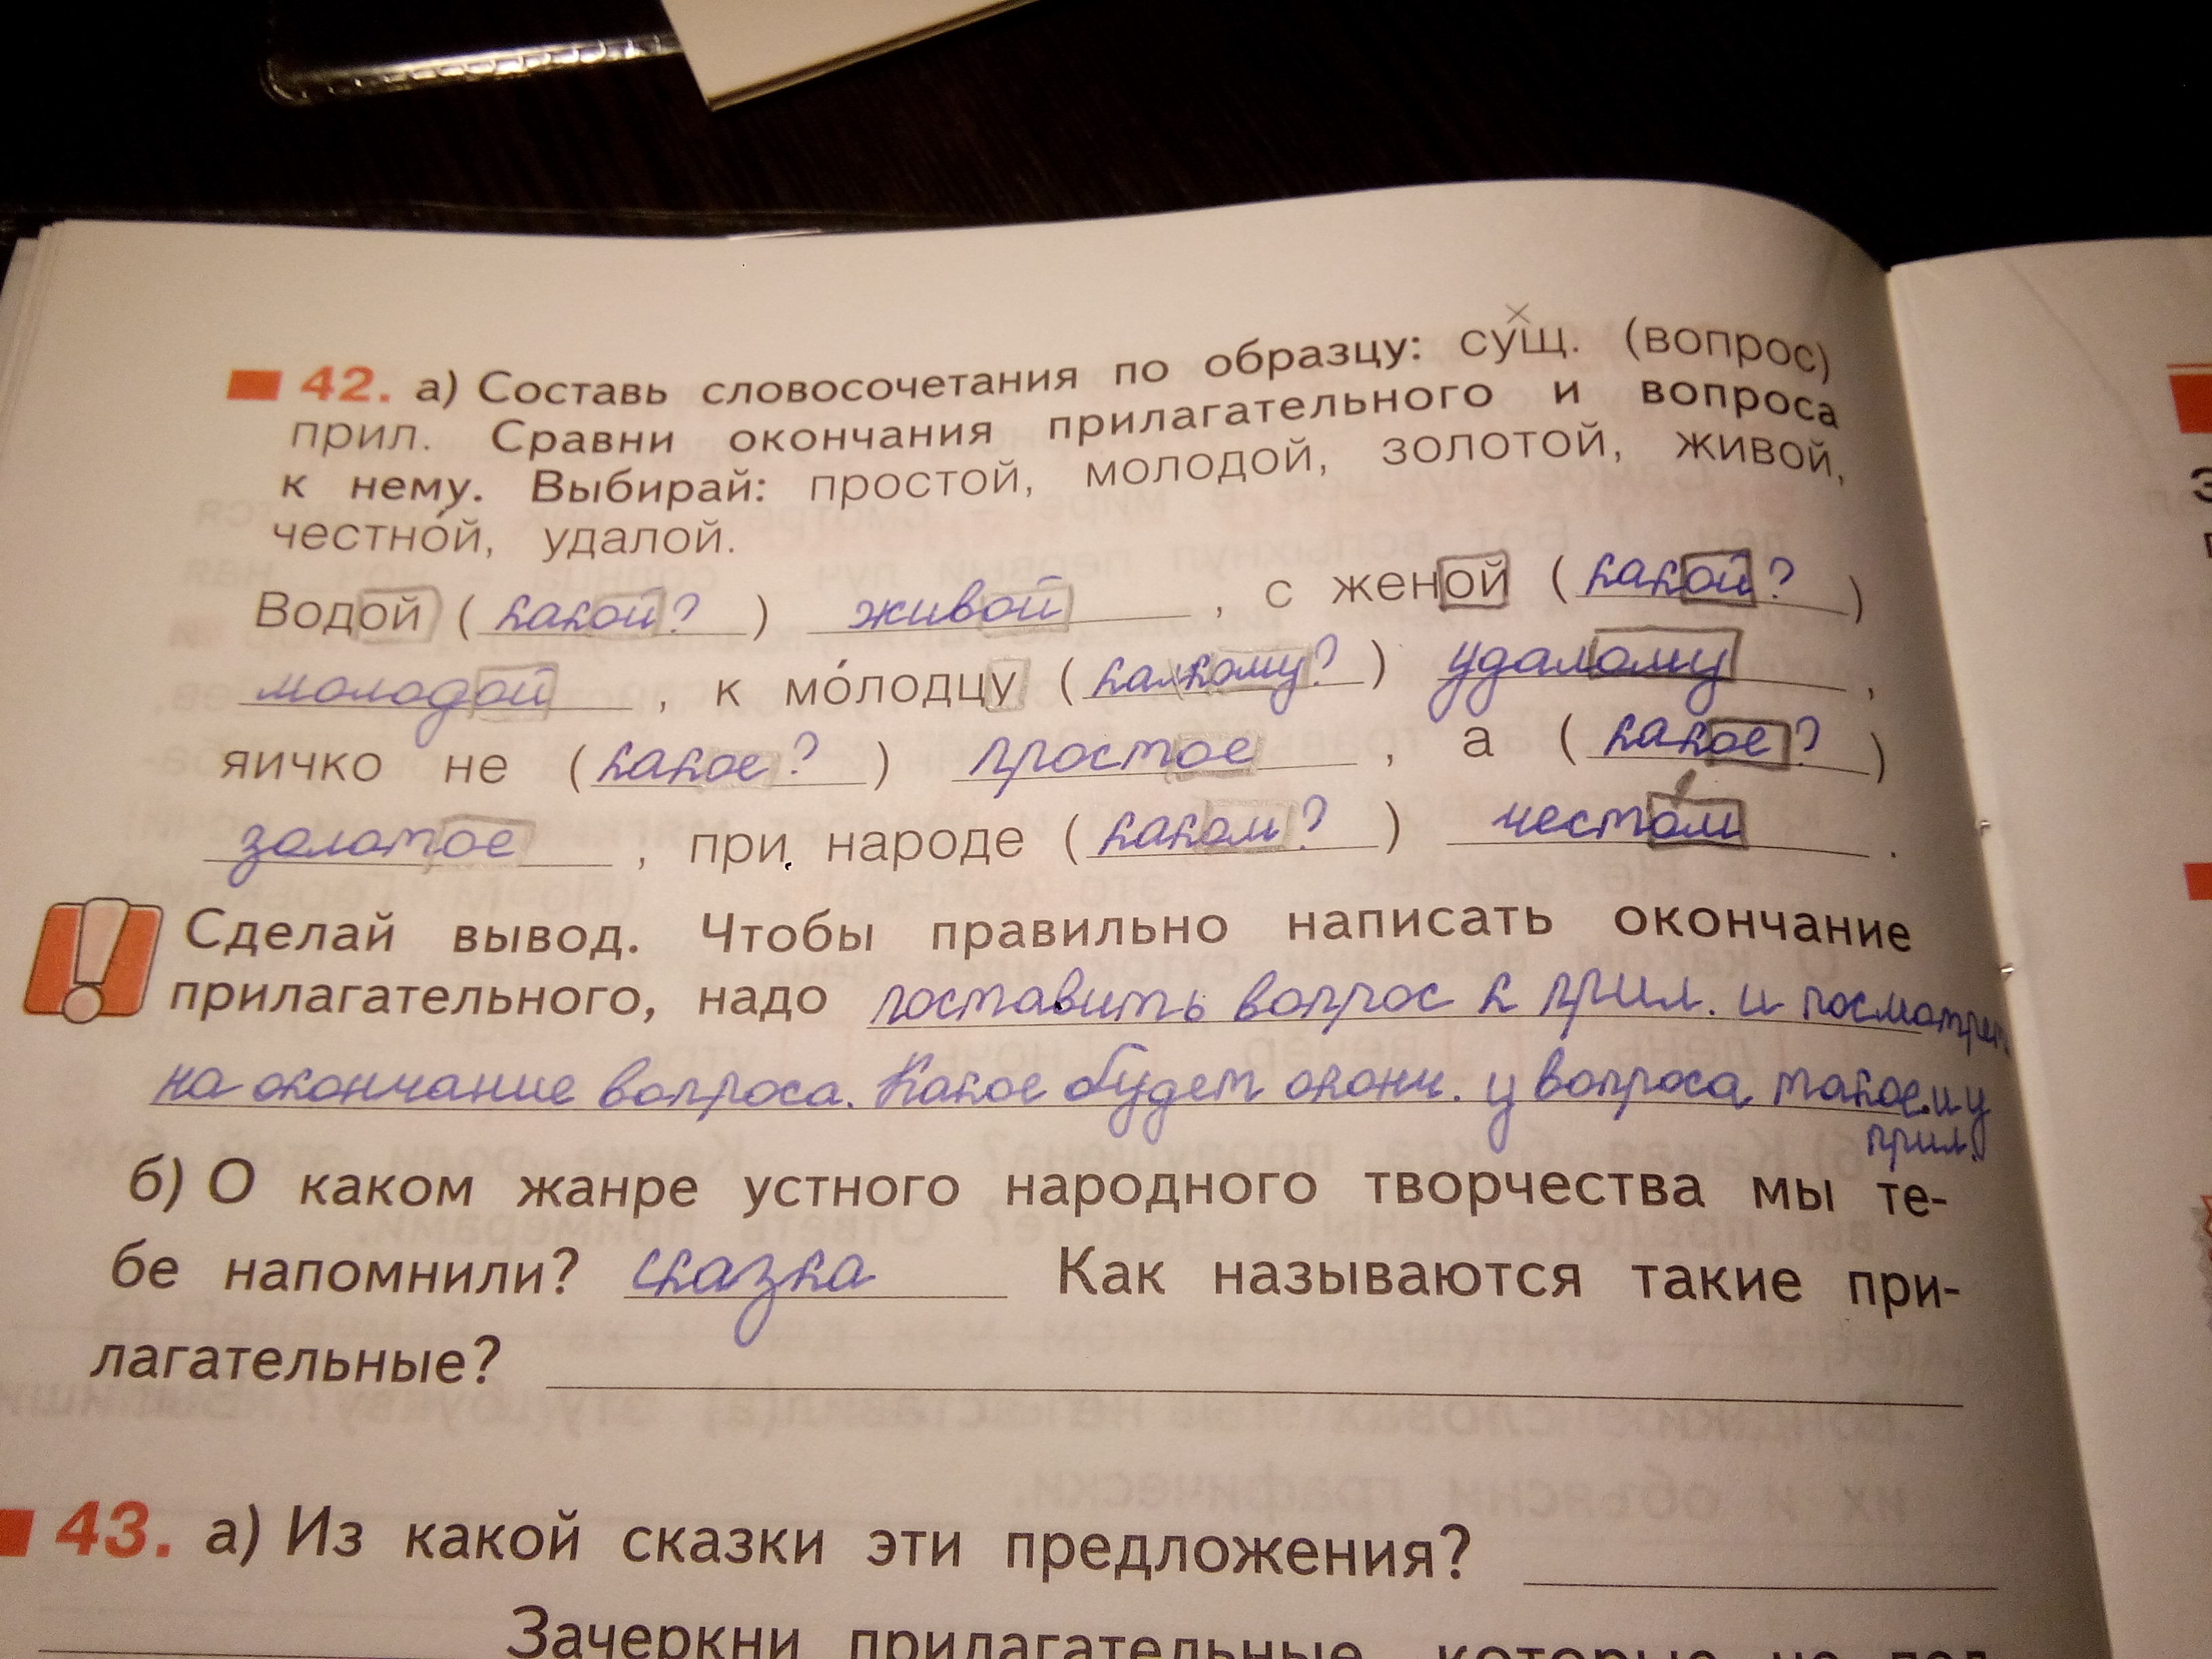 42. а) Составь словосочетания по образцу: сущ. (вопрос)
прил. Сравни окончания прилагательного и вопроса
к нему. Выбирай: простой, молодой, золотой, живой,
честно́й, удалой.
Водой (какой?) живой, с женой (какой?)
молодой, к мо́лодцу (какому?) удалому,
яичко не (какое?) простое, а (какое?)
золотое, при народе (каком?) честом.
Сделай вывод. Чтобы правильно написать окончание
прилагательного, надо поставить вопрос к прил. и посмотреть
на окончание вопроса. Какое будет оконч. у вопроса такое и у
прил.
б) О каком жанре устного народного творчества мы те-
бе напомнили? сказка Как называются такие при-
лагательные?
43. а) Из какой сказки эти предложения?
Зачеркни прилагательные, которые не